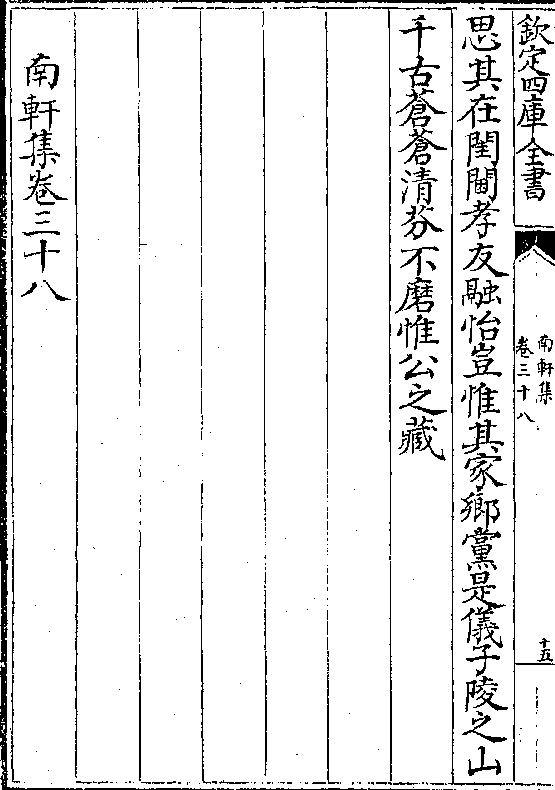 欽定四庫全書
南軒集
卷三十八
十五
思其在閨閫孝友融怡豈惟其家鄉黨是儀子陵之山
千古蒼蒼清芬不磨惟公之藏
南軒集卷三十八